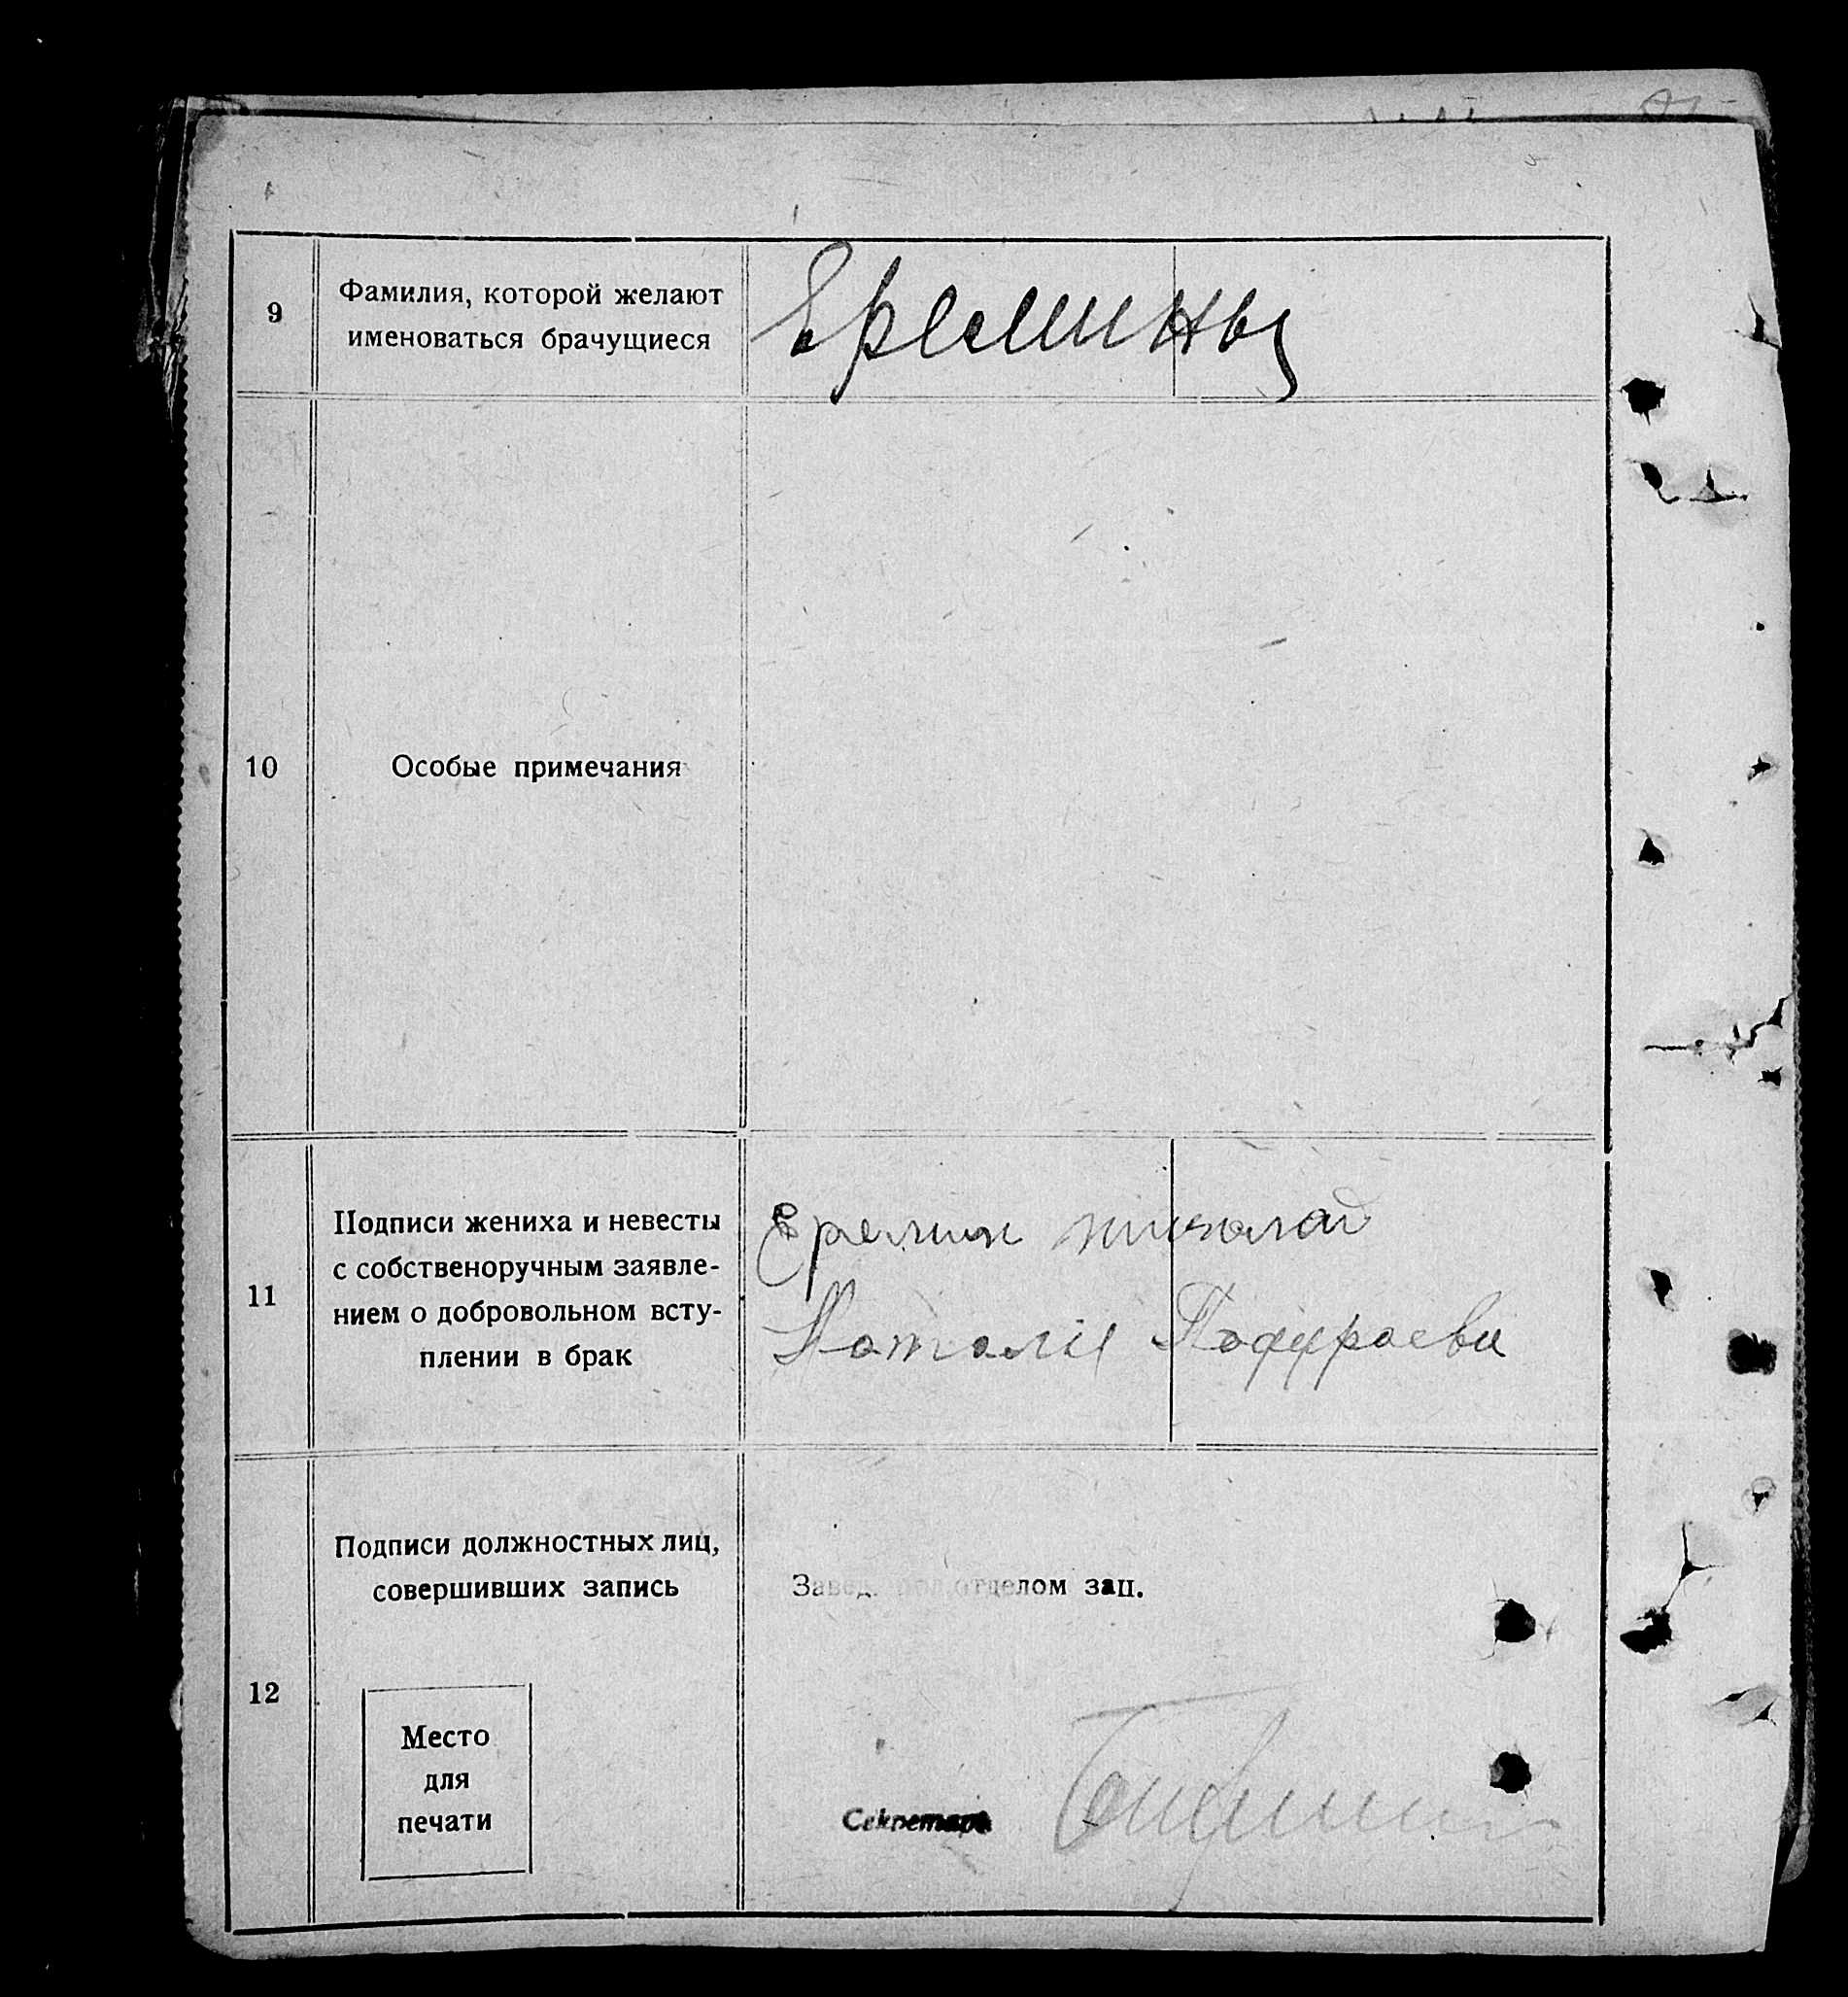 9
Фамилия, которой желают
именоваться брачущиеся
Еремины
10
Особые примечания
11
Подписи жениха и невесты
с собственоручным заявле-
нием о добровольном всту-
плении в брак
Еремин николай
12
Подписи должностных лиц,
совершивших запись
Завед. подотделом зап.
Место
для
печати
Секретарь